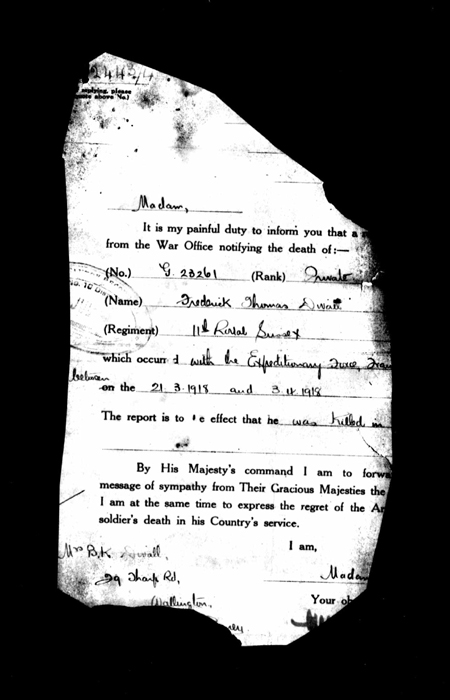 applying, please
above No.)
Madam,
It is my painful duty to inform you that a
from the War Office notifying the death of:—
(No.) G. 23261 (Rank) Private
(Name) Frederick Thomas
(Regiment) 11th Royal Sussex
which occurred with the Expeditionary Force,
between
on the 21.3.1918 and 3.4.1918
The report is to e effect that he was killed in
By His Majesty's command I am to
message of sympathy from Their Gracious Majesties the
I am at the same time to express the regret of the
soldier's death in his Country's service.
I am,
Mrs B.K.
29 Sharp Rd,
Madam
Wallington.
Your